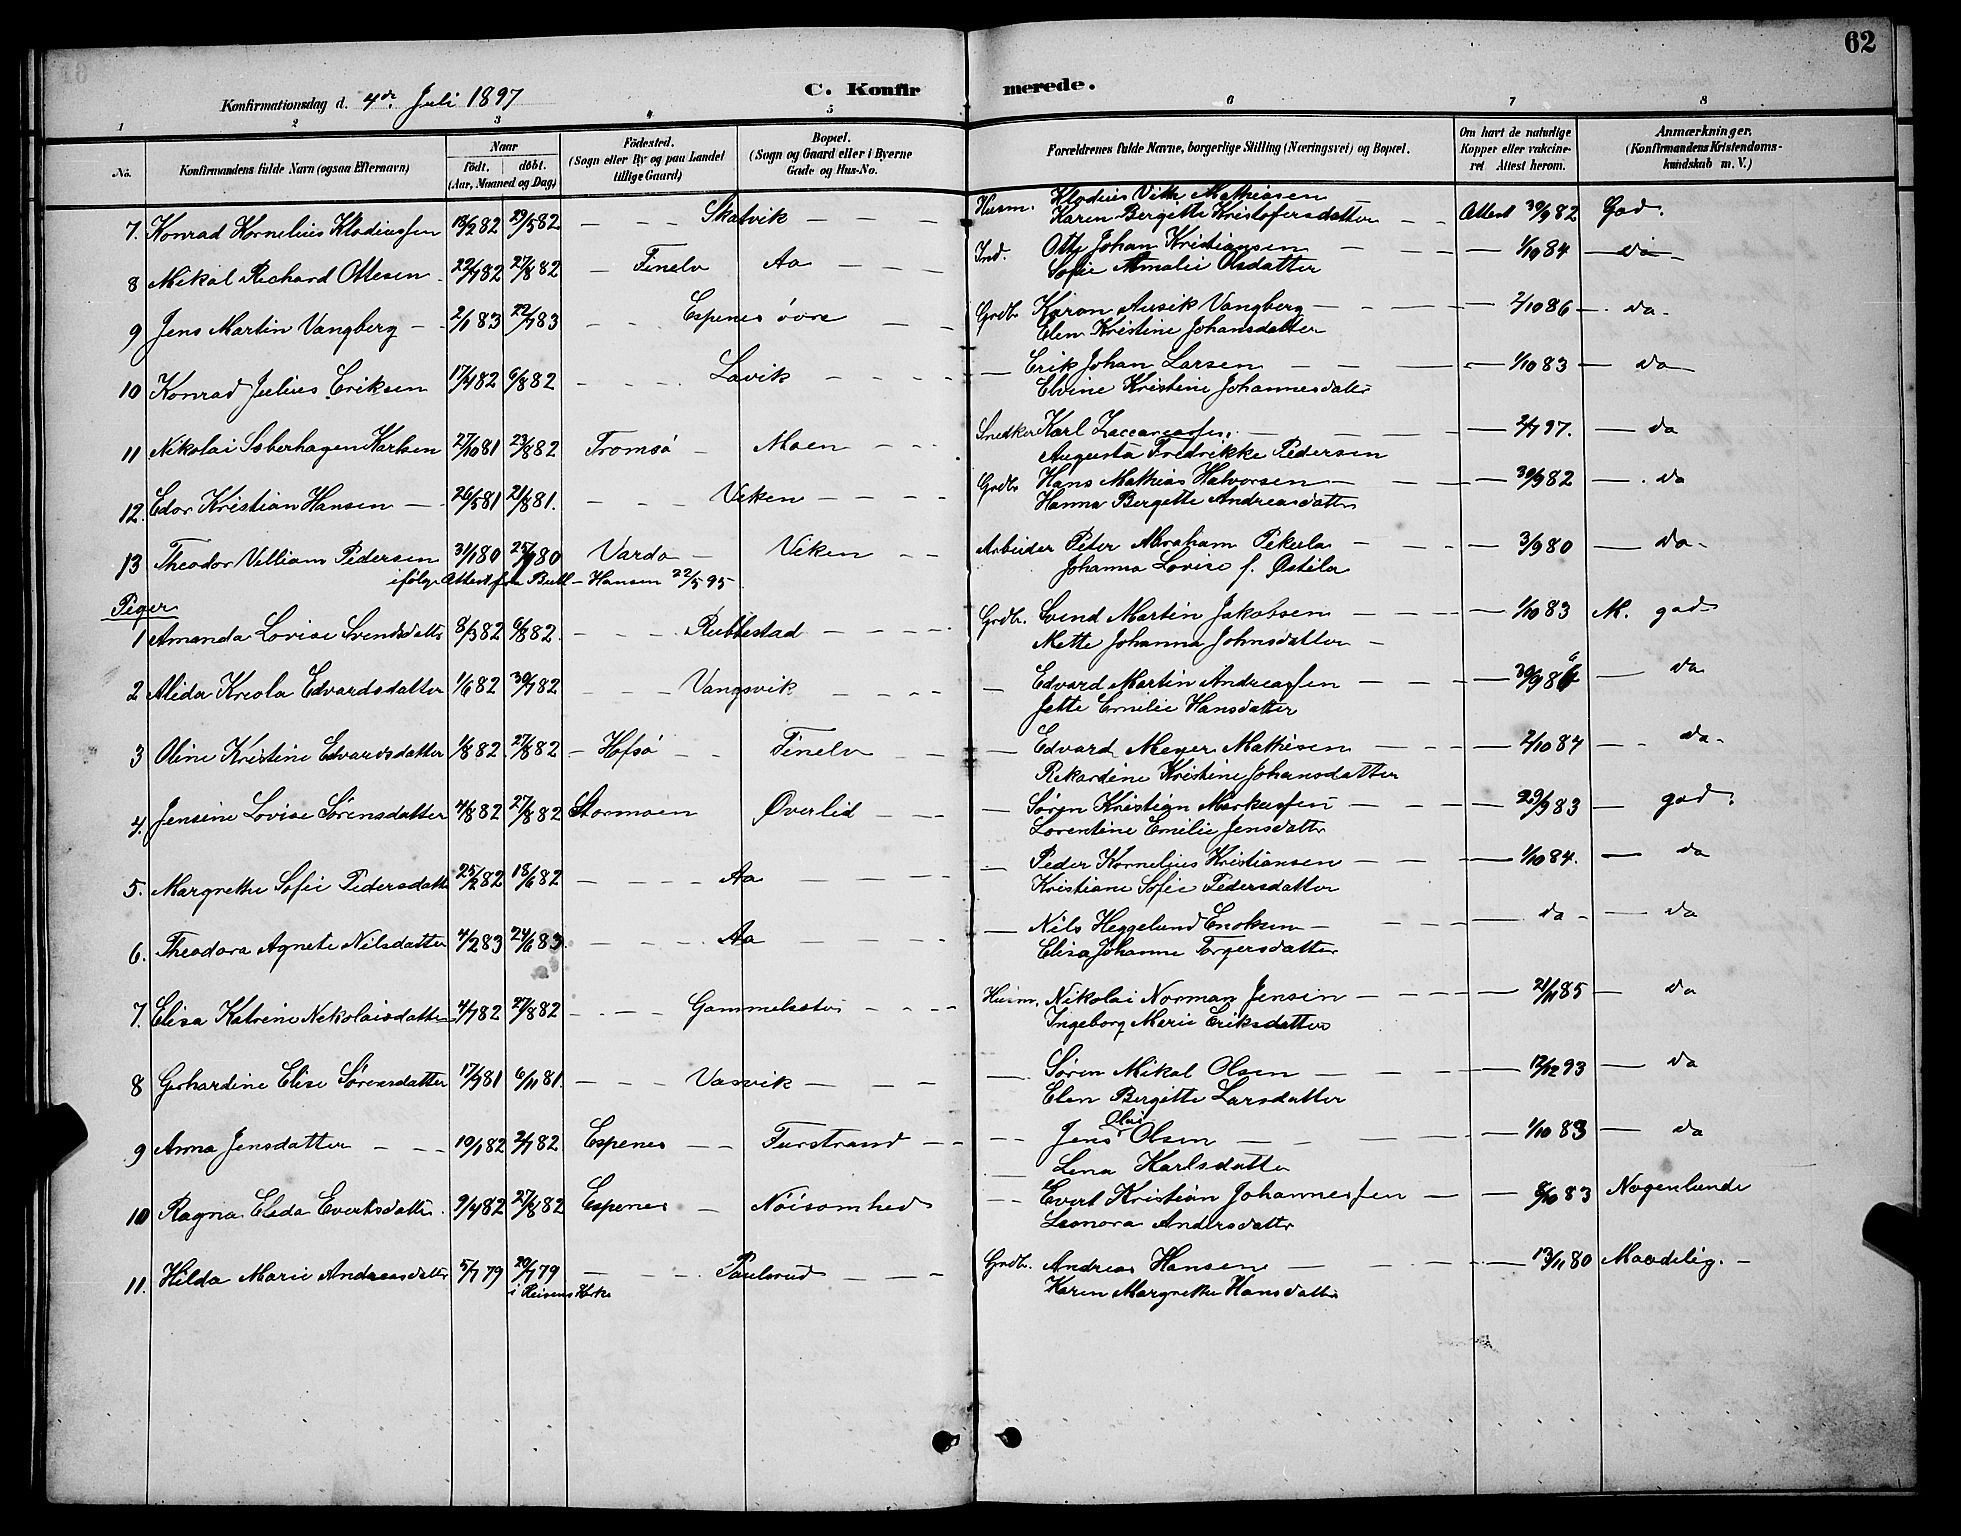 62
C. Konfirmerede.
Konfirmationsdag d. 4de Juli 1897
1 2 3 4 5 6 7 8
No.
Konfirmandens fulde Navn (ogsaa Efternavn)
Naar
födt. döbt.
(Aar, Maaned og Dag)
Födested.
(Sogn eller By og paa Landet
tillige Gaard)
Bopæl.
(Sogn og Gaard eller i Byerne
Gade og Hus-No.
Forældrenes fulde Navne, borgerlige Stilling (Næringsvei) og Bopæl.
Om havt de naturlige
Kopper eller vakcine-
ret Attest herom.
Anmærkninger.
(Konfirmandens Kristendoms-
kundskab m. V.)
7. Konrad Kornelius Klodiussen 13/2 82 29/5 82 – – – Skatvik – – – Husm. Klodius Vith Mathiasen – Attest 30/9 82 God.
Karen Bergitte Kristofersdatter
8 Mikal Richard Ottesen 22/7 82 27/8 82 – Finelv Aa – – – Ind. Otto Johan Kristiansen – 1/10 84 – da –
Sofie Amalie Olsdatter
9 Jens Martin Vangberg – 2/1 83 22/7 83 – – Espenes övre – – Grdb. Hiron Ausik Vangberg – 2/10 86 – da –
Elen Kristine Johansdatter
10 Konrad Julius Eriksen 17/4 82 6/8 82 – – – Lavik – – – – Erik Johan Larsen – 1/10 83 – da –
Elvine Kristine Johannesdatter
11 Nikolai Soberhagen Karlsen 27/10 81 23/8 82 Tromsö – Moen – – Snedker Karl Zaccariassen – 2/7 97. – da
Augusta Fredrikke Pedersen
12. Edor Kristian Hansen – 26/5 81 21/8 81. – – – Viken – – – Grdb. Hans Mathias Halvorsen – 30/9 82 – da
Hanna Bergitte Andreasdatter
13 Theodor Villiam Pedersen 31/1 80 25/7 80 Vardo – Viken – – Arbeider Peter Abraham Pekerla – 3/9 80 – da –
Johanna Lovise f. Ostila
ifölge Attest fra Bull-Hansen 22/5 95
Piger
1 Amanda Lovise Svendsdatter 8/3 82 6/8 82. – – – Rubbestad – – – Grdb. Svend Martin Jakobsen – 1/10 83 M. god
Mette Johanna Johnsdatter –
2 Alida Kreola Edvardsdatter 1/6 82 30/7 82 – – – Vangsvik – – – Edvard Martin Andreassen – 30/9 86 – da
Jette Emilie Hansdatter
3 Oline Kristine Edvardsdatter 1/8 82 27/8 82 – Hofsö – – Finelv – – Edvard Meyer Mathisen – 2/10 84 – da –
Rekardine Kristine Johansdatter
4. Jensine Lovise Sörensdatter 4/8 82 27/8 82 Stormoen Överlid – – – Sören Kristian Markussen – 29/9 83 – god.
Lorentine Emilie Jensdatter
5. Margrethe Sofie Pedersdatter 25/2 82 18/6 82 – – – Aa – – – Peder Kornelius Kristiansen – 1/10 84. – da
Kristiane Sofie Pedersdatter
6. Theodora Agnete Nilsdatter 4/2 83 24/6 83 – – – Aa – – – Nils Heggelund Enoksen – da – da
Elisa Johanne Torgersdatter
7. Elisa Katrine Nekolaisdatter 4/7 82 27/8 82 – – – Gammelseter – – – Husm. Nikolai Norman Jensen – 21/11 85 – da
Ingeborg Marie Eriksdatter
8 Gerhardine Elise Sörensdatter 17/9 81 6/11 81. – – – Vasvik – – – Sören Mikal Olsen – 12/12 93 – da
Elen Bergitte Larsdatter
9 Anna Jensdatter – – – 19/1 82 2/7 82 Espenes – – Furstrand – – – Jens Olai Olsen – 1/10 83 – da
Lena Karlsdatter
10 Ragna Elida Evertsdatter. 9/4 82 27/8 82 Espenes – Nöisomhed – – Evert Kristian Johannessen – 8/10 83 Nogenlunde
Leonora Andersdatter
11. Hilda Marie Andreasdatter 5/7 79 20/7 79 – – – Paulsrud – – – Grdb. Andreas Hansen – 13/11 80 Maadelig. –
Karen Margrethe Hansdatter
i Reisens Kirke